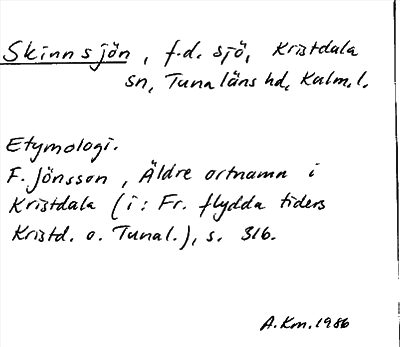 Skinnsjön, f.d. sjö, Kristdala
sn, Tunaläns hd, Kalm. l.
Etymologi.
F. Jönsson, Äldre ortnamn i
Kristdala (i: Fr. flydda tiders
Kristd. o. Tunal.), s. 316.
A.Km. 1986